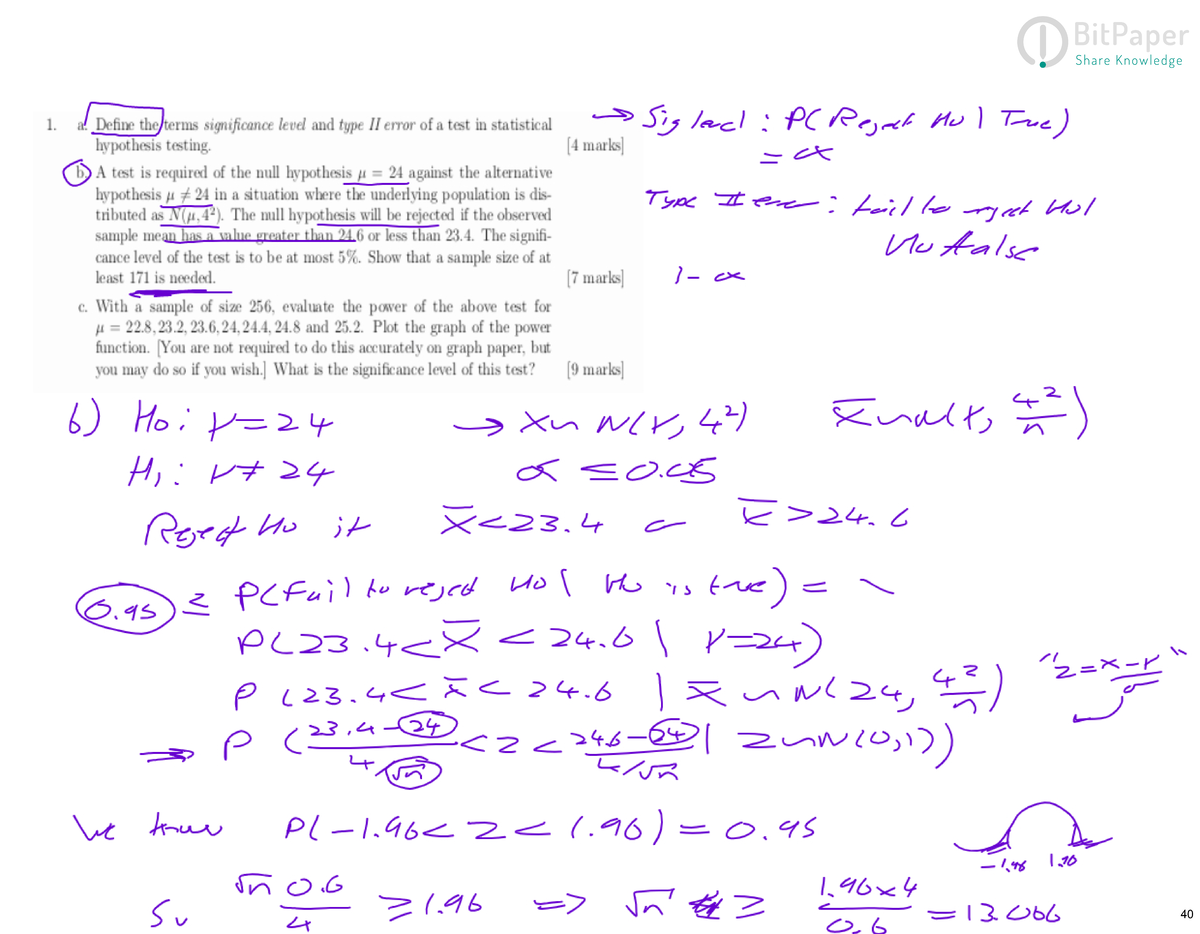 BitPaper
Share Knowledge
1. a. Define the terms significance level and type II error of a test in statistical
hypothesis testing. [4 marks]
b. A test is required of the null hypothesis μ = 24 against the alternative
hypothesis μ ≠ 24 in a situation where the underlying population is dis-
tributed as N(μ, 4²). The null hypothesis will be rejected if the observed
sample mean has a value greater than 24.6 or less than 23.4. The signifi-
cance level of the test is to be at most 5%. Show that a sample size of at
least 171 is needed. [7 marks]
c. With a sample of size 256, evaluate the power of the above test for
μ = 22.8, 23.2, 23.6, 24, 24.4, 24.8 and 25.2. Plot the graph of the power
function. [You are not required to do this accurately on graph paper, but
you may do so if you wish.] What is the significance level of this test? [9 marks]
→ Sig level : P(Reject Ho | True)
= α
Type II error : fail to reject Ho |
Ho false
1 - α
b) Ho: μ = 24 → X ~ N(μ, 4²) X̄ ~ N(μ, 4²/n)
H₁: μ ≠ 24 α ≤ 0.05
Reject Ho if X̄ < 23.4 or X̄ > 24.6
0.95 ≤ P(Fail to reject Ho | Ho is true) =
P(23.4 < X̄ < 24.6 | μ = 24)
P(23.4 < X̄ < 24.6 | X̄ ~ N(24, 4²/n) "Z = x - μ / σ"
⇒ P(23.4 - 24 / 4/√n < Z < 24.6 - 24 / 4/√n | Z ~ N(0,1))
We know P(-1.96 < Z < 1.96) = 0.95
-1.96 1.96
So √n 0.6 / 4 ≥ 1.96 => √n ≥ 1.96 × 4 / 0.6 = 13.066
40